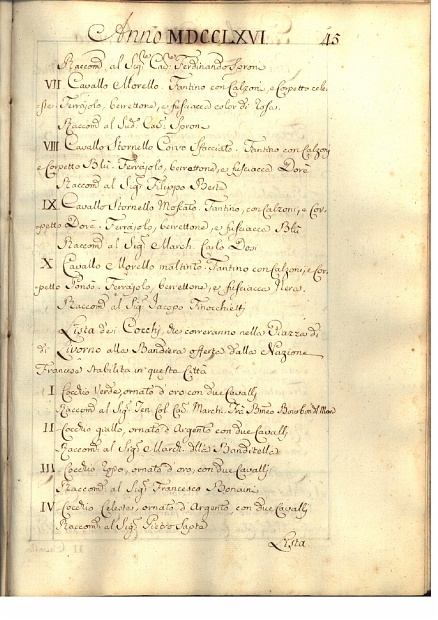 Anno MDCCLXVI 45
Raccom.ᵗ al Sig.ʳᵉ Cav.ʳᵉ Ferdinando Sproni
VII Cavallo Morello. Tantino con Calzoni, e Corpetto cele=
ste. Ferrajolo, berrettone, e fusciacca color di Rosa.
Raccom.ᵗ al Sud.ᵒ Cav. Sproni
VIII Cavallo Stornello Corvo Sfacciato. Fantino con Calzoni
e Corpetto Blù. Ferrajolo, berrettone, e fusciacca Dorè
Raccom.ᵗ al Sig.ʳ Filippo Berte
IX Cavallo Stornello Moscato. Fantino, con Calzoni, e Cor=
petto Dorè, Ferrajolo, berrettone, e fusciacca Blù
Raccom.ᵗ al Sig.ʳ March. Carlo
X Cavallo Morello maltinto. Fantino con Calzoni, e Cor=
petto Ferrajolo, berrettone, e fusciacca Nera.
Raccom.ᵗ al Sig.ʳ Jacopo Finocchietti
Lista dei Cocchi, che correranno nella Piazza di
di Livorno alla Bandiera offerta dalla Nazione
Francese stabilita in questa Città
I Cocchio Verde, ornato d'oro con due Cavalli
Raccom.ᵗ al Sig.ʳ Ten. Col. Cav. March.
II Cocchio giallo, ornato d'Argento con due Cavalli
Raccom.ᵗ al Sig.ʳ March. delle Banditelle
III Cocchio rosso, ornato d'oro, con due Cavalli
Raccom.ᵗ al Sig.ʳ Francesco Bonaini
IV Cocchio Celeste, ornato d'Argento con due Cavalli
Raccom.ᵗ al Sig.ʳ Pietro Sapte
Lista